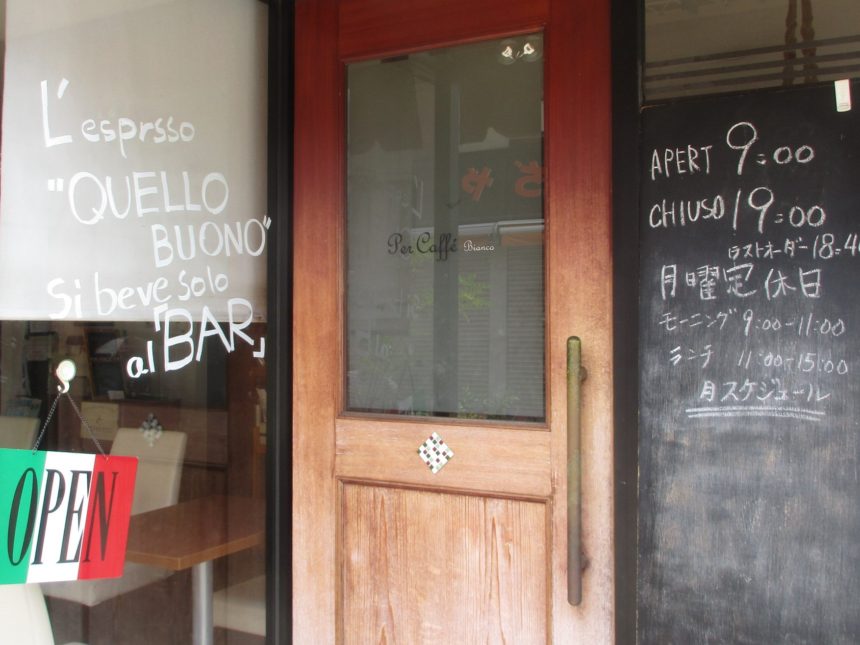 L'esprsso
"QUELLO
BUONO"
Si beve solo
al「BAR」
OPEN
Per Caffé Bianco
APERT 9:00
CHIUSO 19:00
ラストオーダー 18:40
月曜定休日
モーニング 9:00-11:00
ランチ 11:00-15:00
月スケジュール